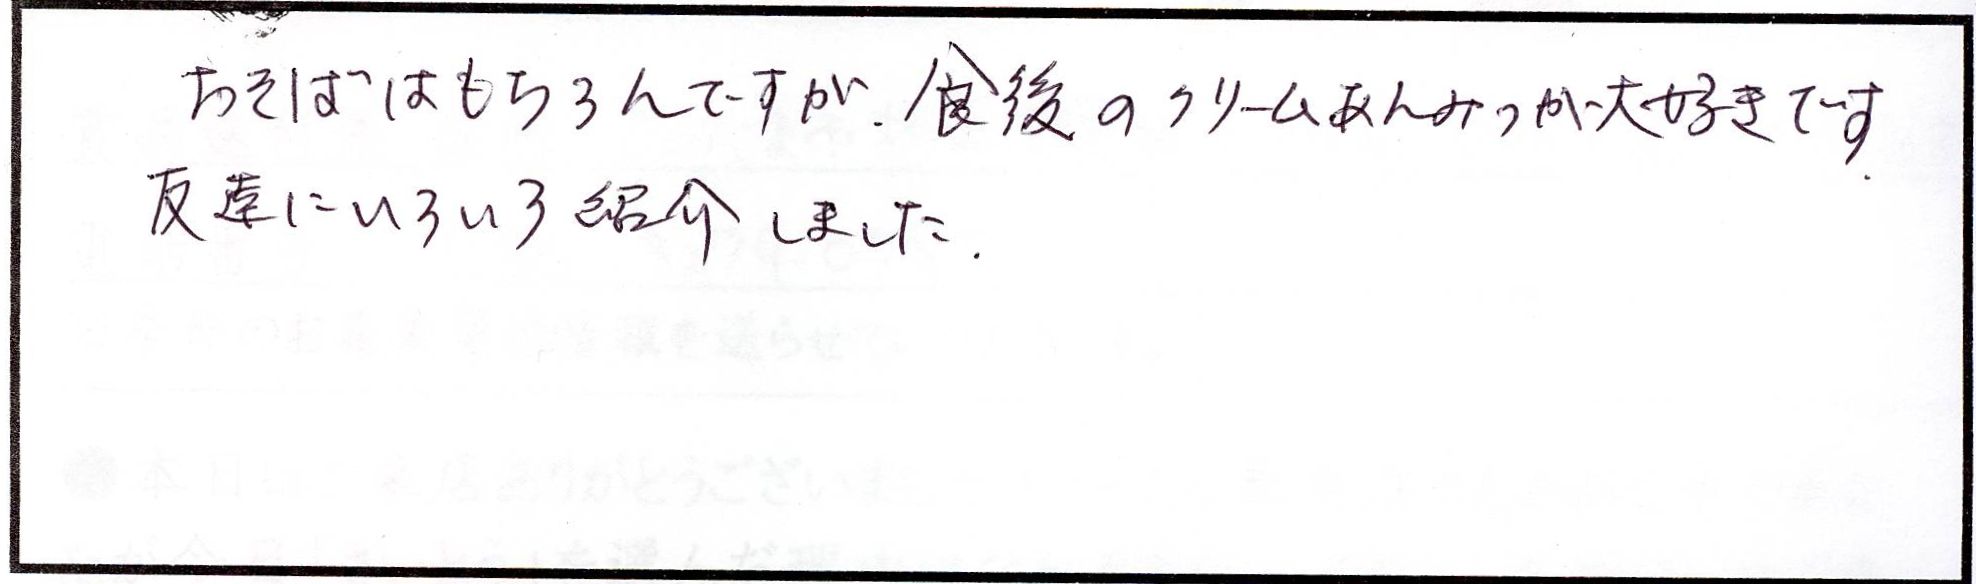 おそばはもちろんですが、食後のクリームあんみつが大好きです。
友達にいろいろ紹介しました。